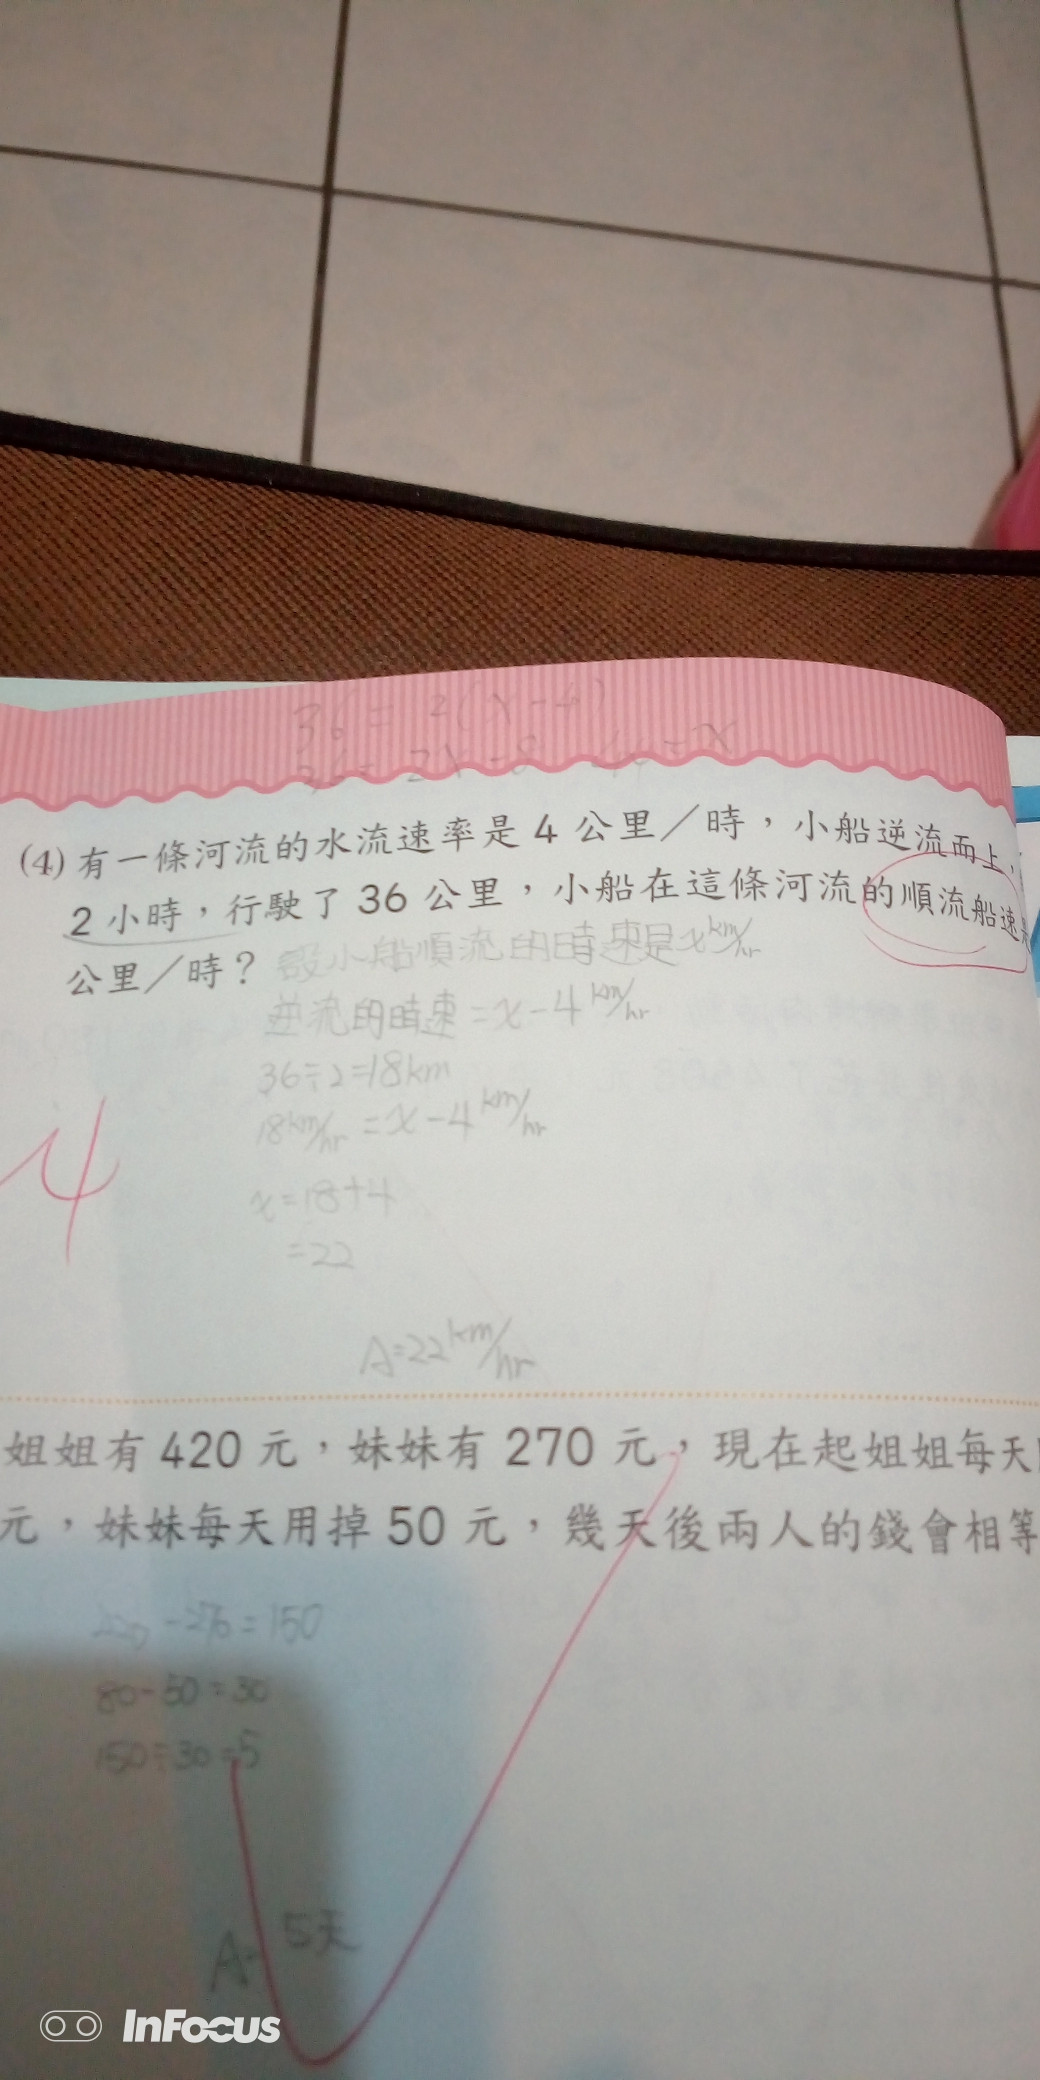 36 = 2(x-4)
36 = 2x-8 44=x
(4)有一條河流的水流速率是4公里／時，小船逆流而上，
2小時，行駛了36公里，小船在這條河流的順流船速是
公里／時？
設小船順流的時速是x km/hr
逆流的時速=x-4 km/hr
36÷2=18km
18km/hr = x-4 km/hr
x=18+4
=22
A=22 km/hr
姐姐有420元，妹妹有270元，現在起姐姐每天
元，妹妹每天用掉50元，幾天後兩人的錢會相等
420-270=150
80-50=30
150÷30=5
A= 5天
InFocus